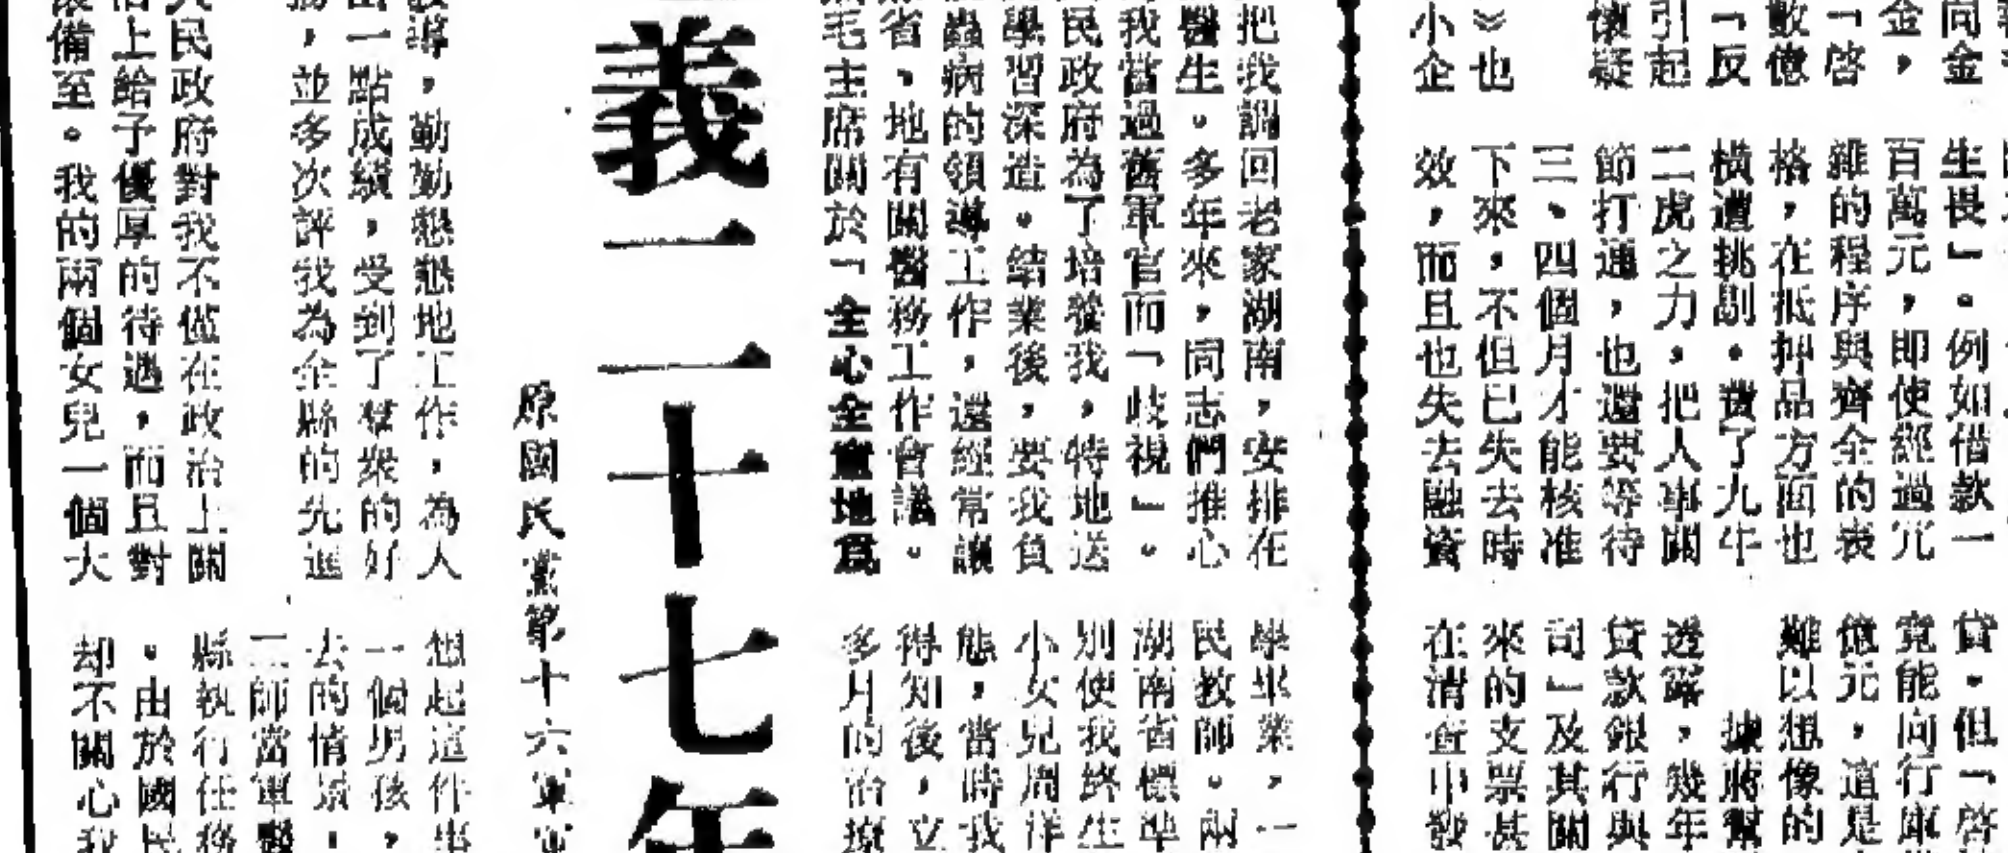 同金
金，
「啓
數億
「反
引起
懷疑
》也
小企
生畏」。例如借款一
百萬元，即使經過冗
雜的程序與齊全的表
格，在抵押品方面也
橫遭挑剔。費了九牛
二虎之力，把人事關
節打通，也還要等待
三、四個月才能核准
下來，不但已失去時
效，而且也失去融資
貸。但「啓
竟能向行庫
億元，這是
難以想像的
據蔣幫
透露，幾年
貸款銀行與
司」及其關
來的支票甚
在清查中發
把我調回老家湖南，安排在
醫生。多年來，同志們推心
我當過舊軍官而「歧視」。
民政府為了培養我，特地送
學習深造。結業後，要我負
蟲病的領導工作，還經常讓
省、地有關醫務工作會議。
毛主席關於「全心全意地爲
學畢業，一
民教師。兩
湖南省標準
別使我終生
小女兒周洋
態，當時我
得知後，立
多月的治療
義二十七年
原國民黨第十六軍軍
教導，勤勤懇懇地工作，為人
出一點成績，受到了羣衆的好
務，並多次評我為全縣的先進
人民政府對我不僅在政治上關
活上給予優厚的待遇，而且對
懷備至。我的兩個女兒一個大
想起這件事
一個男孩，
去的情景：
二師當軍醫
縣執行任務
。由於國民
却不關心我